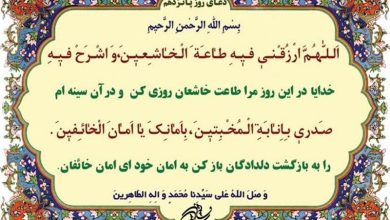 دعای روز پانزدهم
بِسْمِ اللهِ الرَّحْمنِ الرَّحیمِ
اَللّهُمَّ ارْزُقْنی فیهِ طاعَةَ الْخاشِعینَ، وَ اشْرَحْ فیهِ
خدایا در این روز مرا طاعت خاشعان روزی کن و در آن سینه ام
صَدری بِاِنابَةِ الْمُخْبِتینَ، بِاَمانِکَ یا اَمانَ الْخائِفینَ.
را به بازگشت دلدادگان باز کن به امان خود ای امان خائفان.
وَ صَلَّ اللهُ عَلی سَیِّدِنا مُحَمَّدٍ وَ الِهِ الطّاهِرینَ